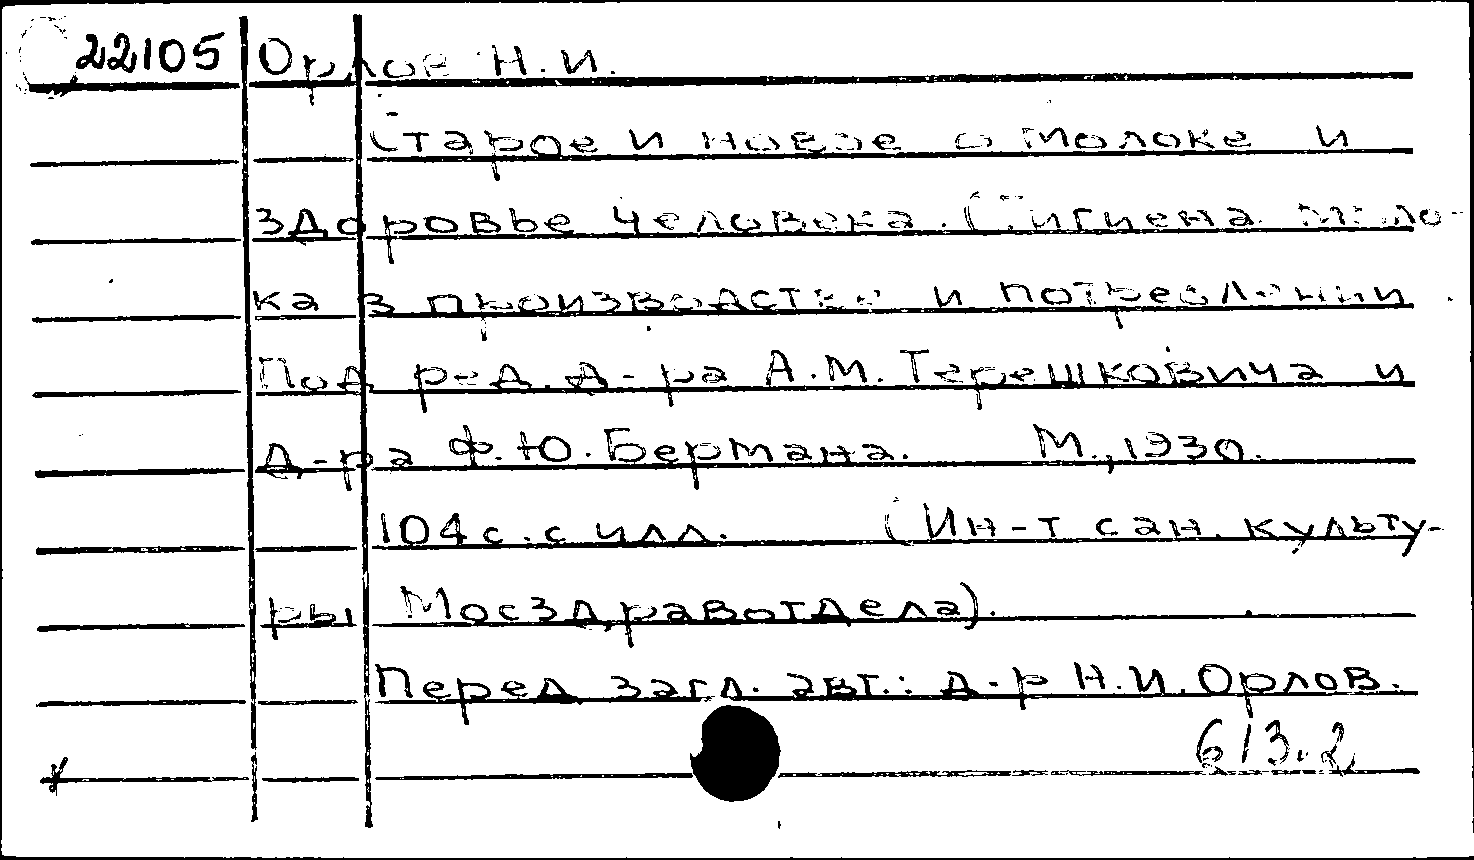 22105 Орлов Н.И.
Старое и новое о молоке и
здоровье человека. (Гигиена моло-
ка в производстве и потреблении.
Под ред. д-ра А.М. Терешковича и
д-ра Ф.Ю. Бермана. М., 1930.
104 с. с илл. (Ин-т сан. культу-
ры Мосздравотдела).
Перед загл. авт.: д-р Н.И. Орлов.
613.2